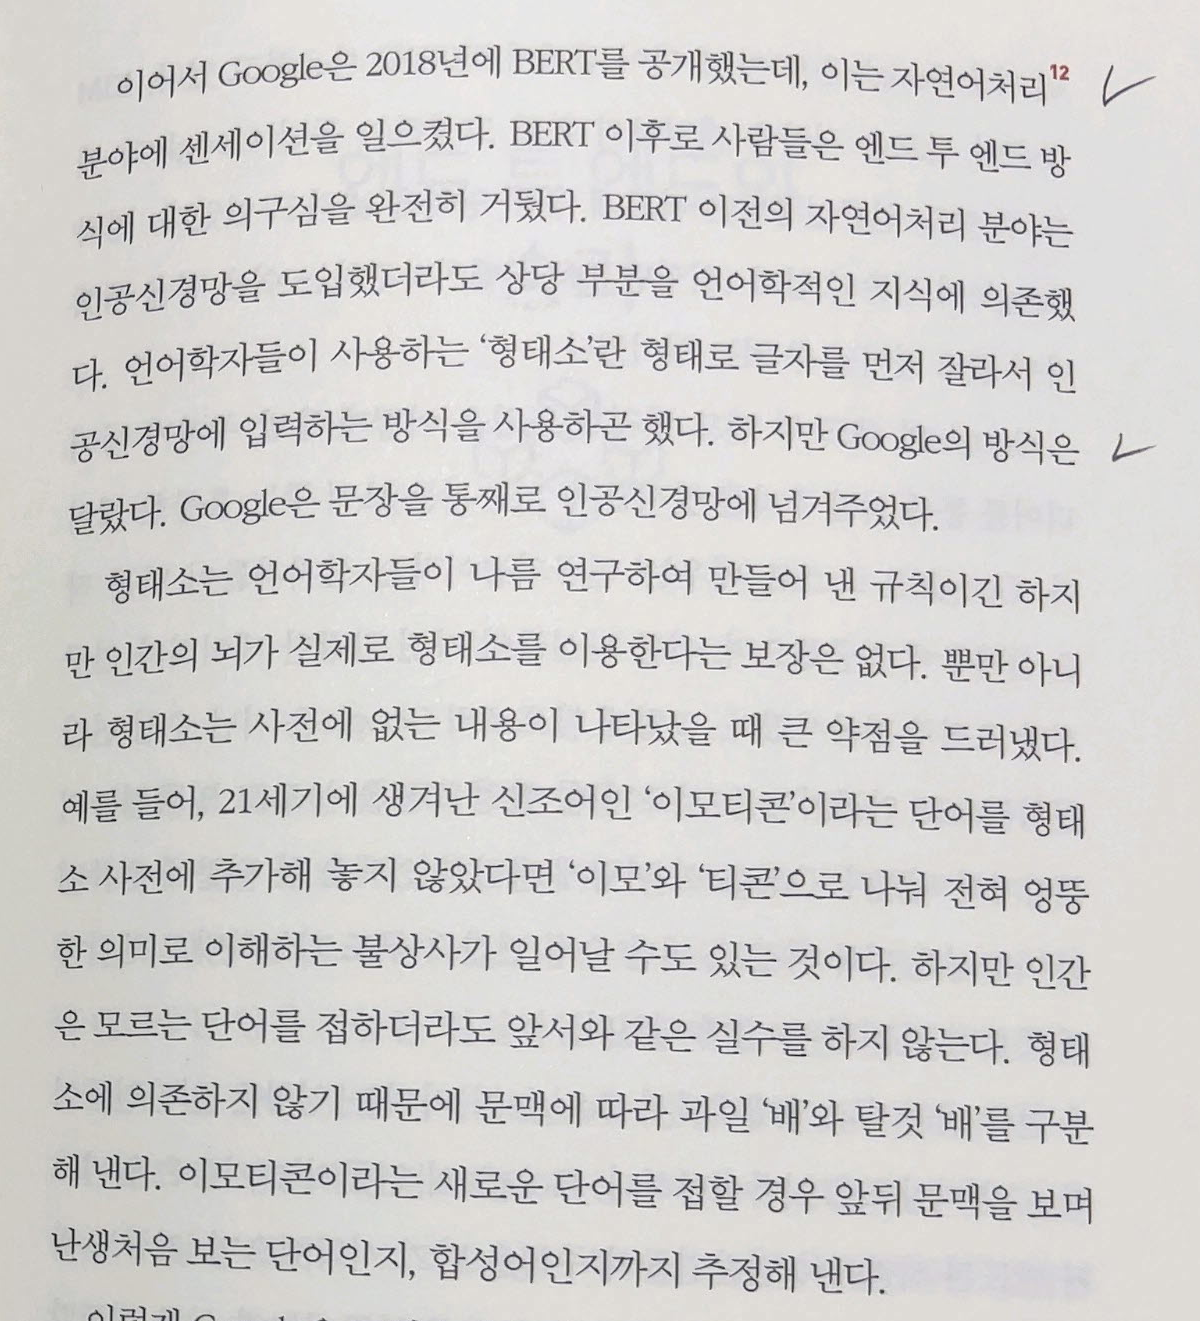 이어서 Google은 2018년에 BERT를 공개했는데, 이는 자연어처리12
분야에 센세이션을 일으켰다. BERT 이후로 사람들은 엔드 투 엔드 방
식에 대한 의구심을 완전히 거뒀다. BERT 이전의 자연어처리 분야는
인공신경망을 도입했더라도 상당 부분을 언어학적인 지식에 의존했
다. 언어학자들이 사용하는 ‘형태소’란 형태로 글자를 먼저 잘라서 인
공신경망에 입력하는 방식을 사용하곤 했다. 하지만 Google의 방식은
달랐다. Google은 문장을 통째로 인공신경망에 넘겨주었다.
형태소는 언어학자들이 나름 연구하여 만들어 낸 규칙이긴 하지
만 인간의 뇌가 실제로 형태소를 이용한다는 보장은 없다. 뿐만 아니
라 형태소는 사전에 없는 내용이 나타났을 때 큰 약점을 드러냈다.
예를 들어, 21세기에 생겨난 신조어인 ‘이모티콘’이라는 단어를 형태
소 사전에 추가해 놓지 않았다면 ‘이모’와 ‘티콘’으로 나눠 전혀 엉뚱
한 의미로 이해하는 불상사가 일어날 수도 있는 것이다. 하지만 인간
은 모르는 단어를 접하더라도 앞서와 같은 실수를 하지 않는다. 형태
소에 의존하지 않기 때문에 문맥에 따라 과일 ‘배’와 탈것 ‘배’를 구분
해 낸다. 이모티콘이라는 새로운 단어를 접할 경우 앞뒤 문맥을 보며
난생처음 보는 단어인지, 합성어인지까지 추정해 낸다.